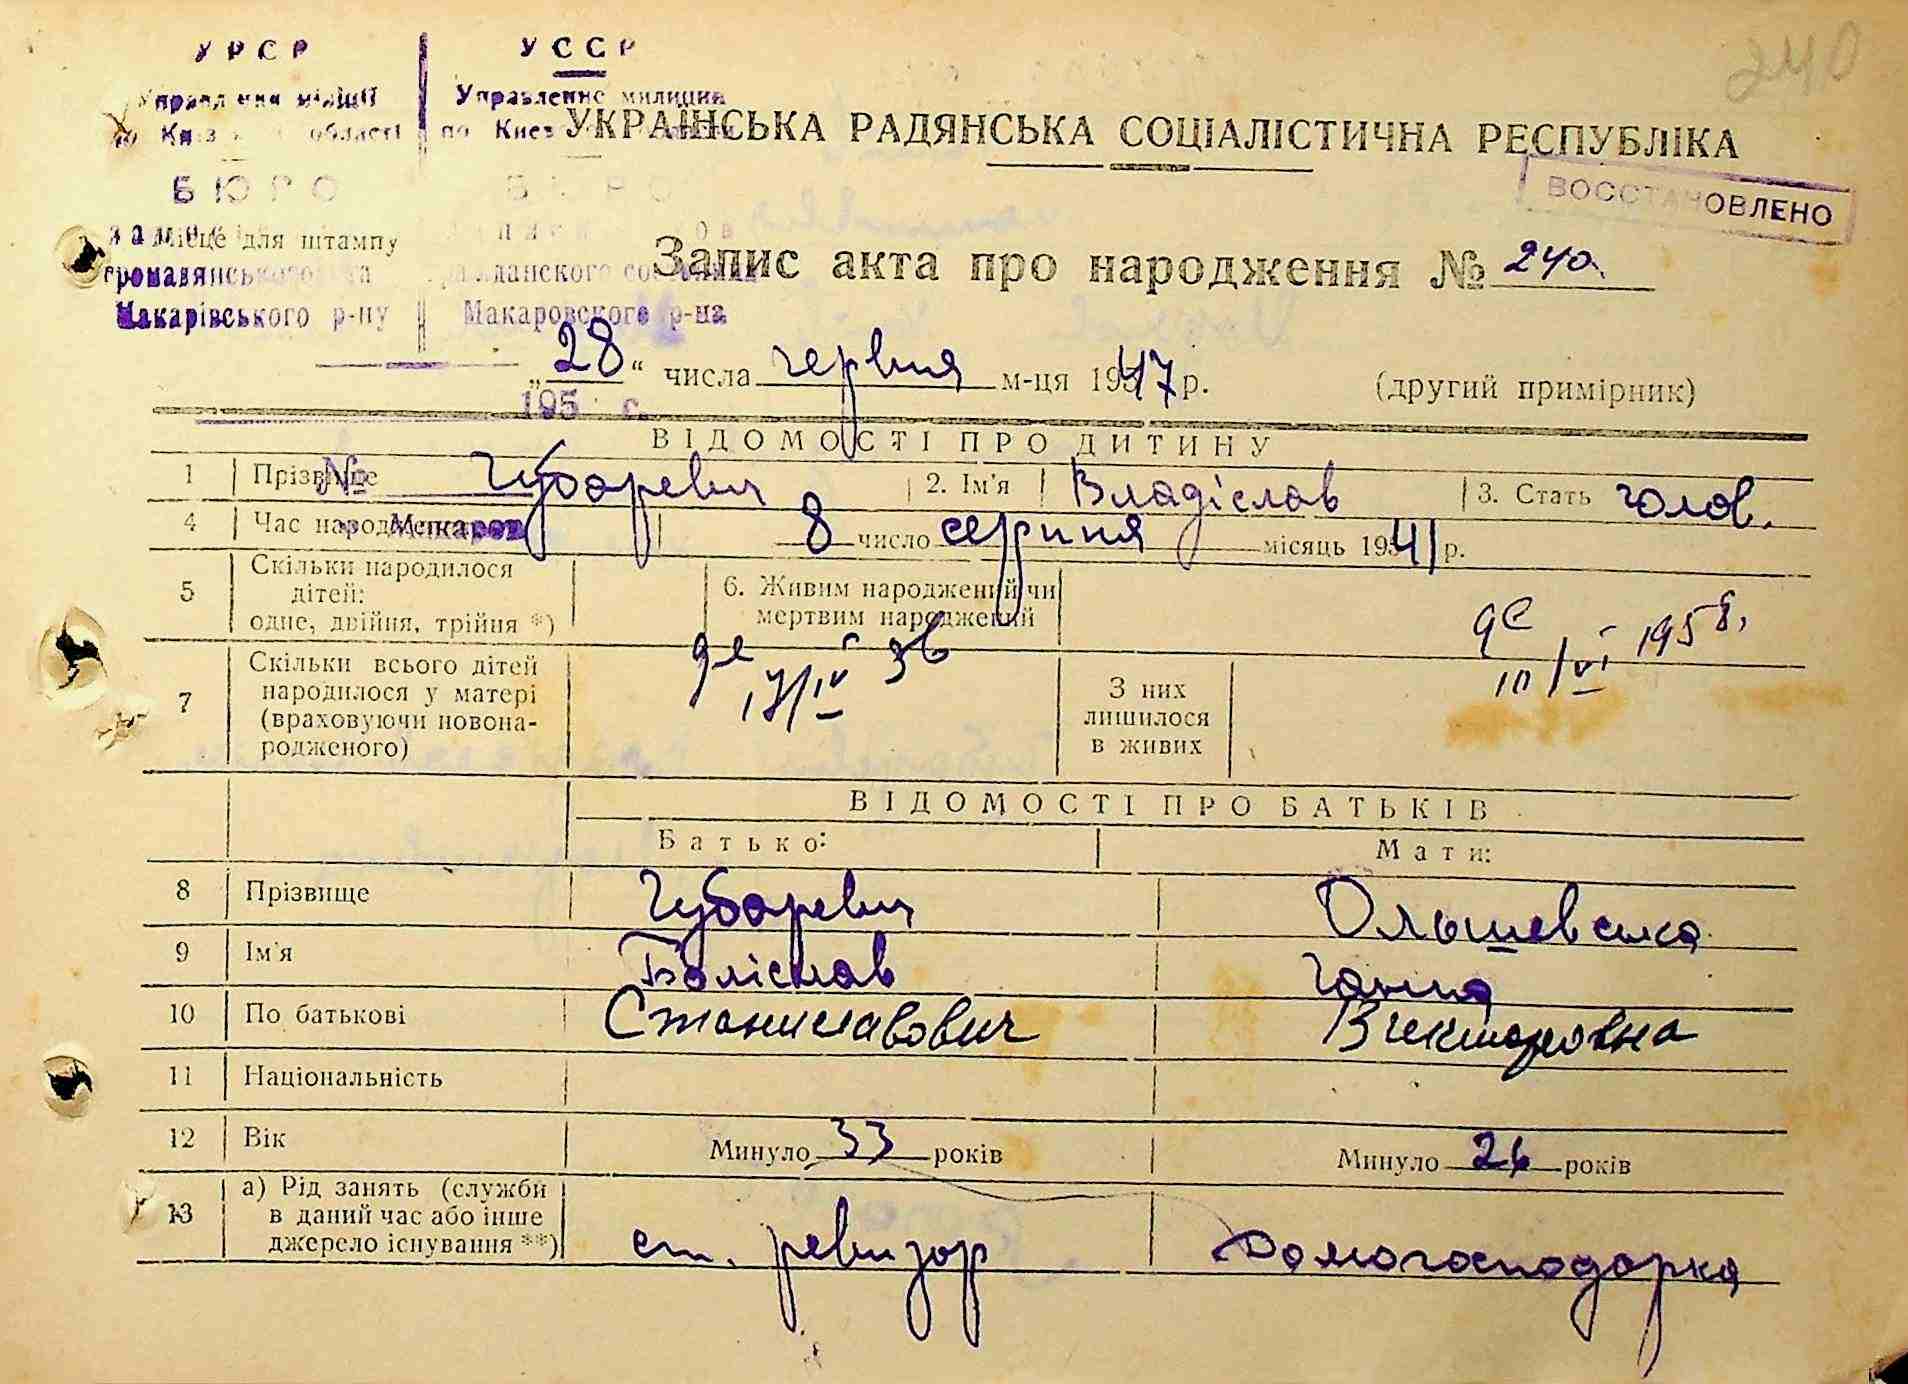 240
УРСР УССР
Управління міліції Управление милиции
по області по Киев
УКРАЇНСЬКА РАДЯНСЬКА СОЦІАЛІСТИЧНА РЕСПУБЛІКА
БЮРО БЮРО
ВОССТАНОВЛЕНО
Місце для штампу
Запис акта про народження № 240
громадянського гражданского
Макарівського р-ну Макаровского р-на
„28“ числа червня м-ця 1947 р. (другий примірник)
195 г.
ВІДОМОСТІ ПРО ДИТИНУ
1 Прізвище № Губаревич 2. Ім'я Владіслав 3. Стать чолов.
4 Час народження Макаров 8 число серпня місяць 1941 р.
5 Скільки народилося дітей: одне, двійня, трійня *) 6. Живим народжений чи мертвим народжений
1958
7 Скільки всього дітей народилося у матері (враховуючи новона-родженого) 17/IV З них лишилося в живих
ВІДОМОСТІ ПРО БАТЬКІВ
Батько: Мати:
8 Прізвище Губаревич Ольшевська
9 Ім'я Боліслав Ганна
10 По батькові Станиславович Викторовна
11 Національність
12 Вік Минуло 33 років Минуло 26 років
13 а) Рід занять (служби в даний час або інше джерело існування **) ст. ревизор Домогосподарка